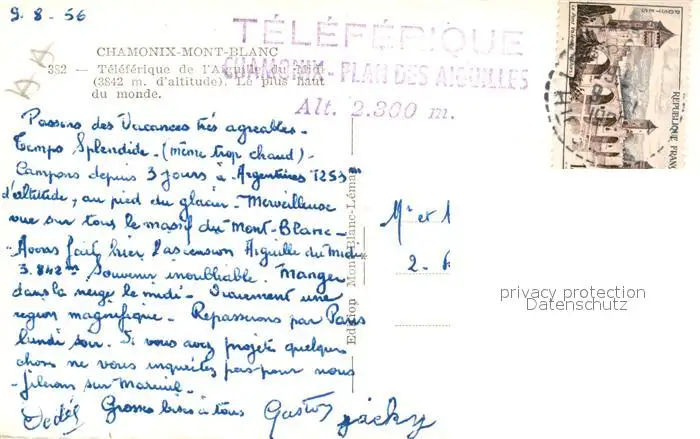 9.8-56
TÉLÉFÉRIQUE
CHAMONIX - PLAN DES AIGUILLES
Alt. 2.300 m.
CHAMONIX-MONT-BLANC
352 — Téléférique de l'Aiguille du Midi
(3842 m. d'altitude). Le plus haut
du monde.
Passons des Vacances très agréables -
Temps Splendide - (même trop chaud) -
Campons depuis 3 jours à Argentières 1253 m
d'altitude, au pied du glacier - Merveilleuse
vue sur tous le massif du Mont-Blanc -
Avons fait hier l'ascension Aiguille du Midi
3.842 m Souvenir inoubliable. Manger
dans la neige le midi - Vraiement une
region magnifique - Repasserons par Paris
lundi soir. Si vous avez projeté quelque
chose ne vous inquietes pas pour nous
- filerons sur Mareuil -
Dédé Grosses bises à tous Gaston Jacky
Edition Mont-Blanc-Léman
M. et
2 -
POSTES
REPUBLIQUE FRANC
privacy protection
Datenschutz